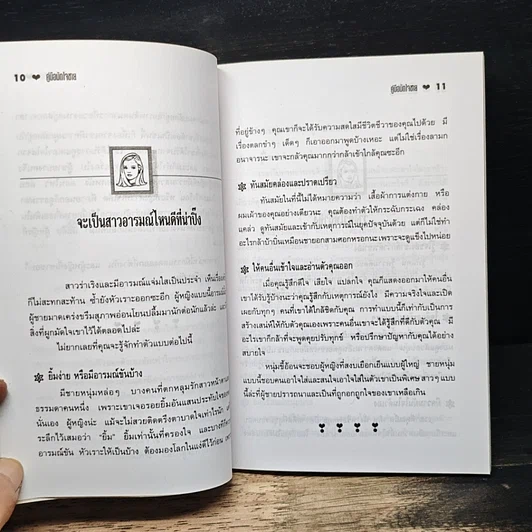 10 ❤ คู่มือมัดใจชาย
จะเป็นสาวอารมณ์ไหนดีที่น่าปิ๊ง
สาวร่าเริงและมีอารมณ์แจ่มใสเป็นประจำ เห็นเรื่อง
ก็ไม่สะทกสะท้าน ซ้ำยังหัวเราะออกซะอีก ผู้หญิงแบบนี้อารมณ์
ผู้ชายมาดเคร่งขรึมสุภาพอ่อนโยนปลื้มมานักต่อนักแล้วค่ะ
สิ่งที่ผูกมัดใจเขาไว้ได้ตลอดไปล่ะ
ไม่ยากเลยที่คุณจะรู้จักทำตัวแบบต่อไปนี้
ยิ้มง่าย หรือมีอารมณ์ขันบ้าง
มีชายหนุ่มหล่อๆ บางคนที่ตกหลุมรักสาวหน้าตา
ธรรมดาคนหนึ่ง เพราะเขาเจอรอยยิ้มอันแสนประทับใจของ
นั่นเอง ผู้หญิงน่ะ แม้จะไม่สวยติดตรึงตาบาดใจเท่าไรนัก
ระลึกไว้เสมอว่า "ยิ้ม" ยิ้มเท่านั้นที่ครองใจ และบางที
อารมณ์ขัน หัวเราะให้เป็นบ้าง ต้องมองโลกในแง่ดีไว้ก่อน
คู่มือมัดใจชาย ❤ 11
ที่อยู่ข้างๆ คุณเขาก็จะได้รับความสดใสมีชีวิตชีวาของคุณไปด้วย มี
เรื่องตลกขำๆ เด็ดๆ ก็เอาออกมาพูดบ้างเหอะ แต่ไม่ใช่เรื่องลามก
อนาจารนะ เขาจะกลัวคุณมากกว่ากล้าเข้าใกล้คุณซะอีก
ทันสมัยคล่องและปราดเปรียว
ทันสมัยในที่นี้ไม่ได้หมายความว่า เสื้อผ้าการแต่งกาย หรือ
ผมเผ้าของคุณอย่างเดียวนะ คุณต้องทำตัวให้กระฉับกระเฉง คล่อง
แคล่ว ดูทันสมัยและเข้ากับเหตุการณ์ในยุคปัจจุบันด้วย แต่ก็ไม่ใช่ทำ
อะไรกล้าบ้าบิ่นเหมือนชายอกสามศอกหรอกนะเพราะจะดูแข็งไปหน่อย
ให้คนอื่นเข้าใจและอ่านตัวคุณออก
เมื่อคุณรู้สึกดีใจ เสียใจ แปลกใจ คุณก็แสดงออกมาให้คนอื่น
เขาได้รับรู้บ้างนะว่าคุณรู้สึกกับเหตุการณ์ยังไง มีความจริงใจและเปิด
เผยกับทุกๆ คนที่เขาได้ใกล้ชิดกับคุณ การทำแบบนี้ก็เท่ากับเป็นการ
สร้างเสน่ห์ให้กับตัวคุณเองเพราะคนอื่นเขาจะได้รู้สึกที่ดีกับตัวคุณ มี
อะไรเขาก็กล้าที่จะพูดคุยปรับทุกข์ หรือปรึกษาปัญหากับคุณได้อย่าง
สบายใจ
หนุ่มขี้อ้อนจะชอบผู้หญิงที่สงบเยือกเย็นแบบผู้ใหญ่ ชายหนุ่ม
แบบนี้ชอบคนเอาใจใส่และสนใจเอาใจใส่ในตัวเขาเป็นพิเศษ สาวๆ แบบ
นี้ล่ะที่ผู้ชายปรารถนาและเป็นที่ถูกอกถูกใจของเขาเหลือเกิน